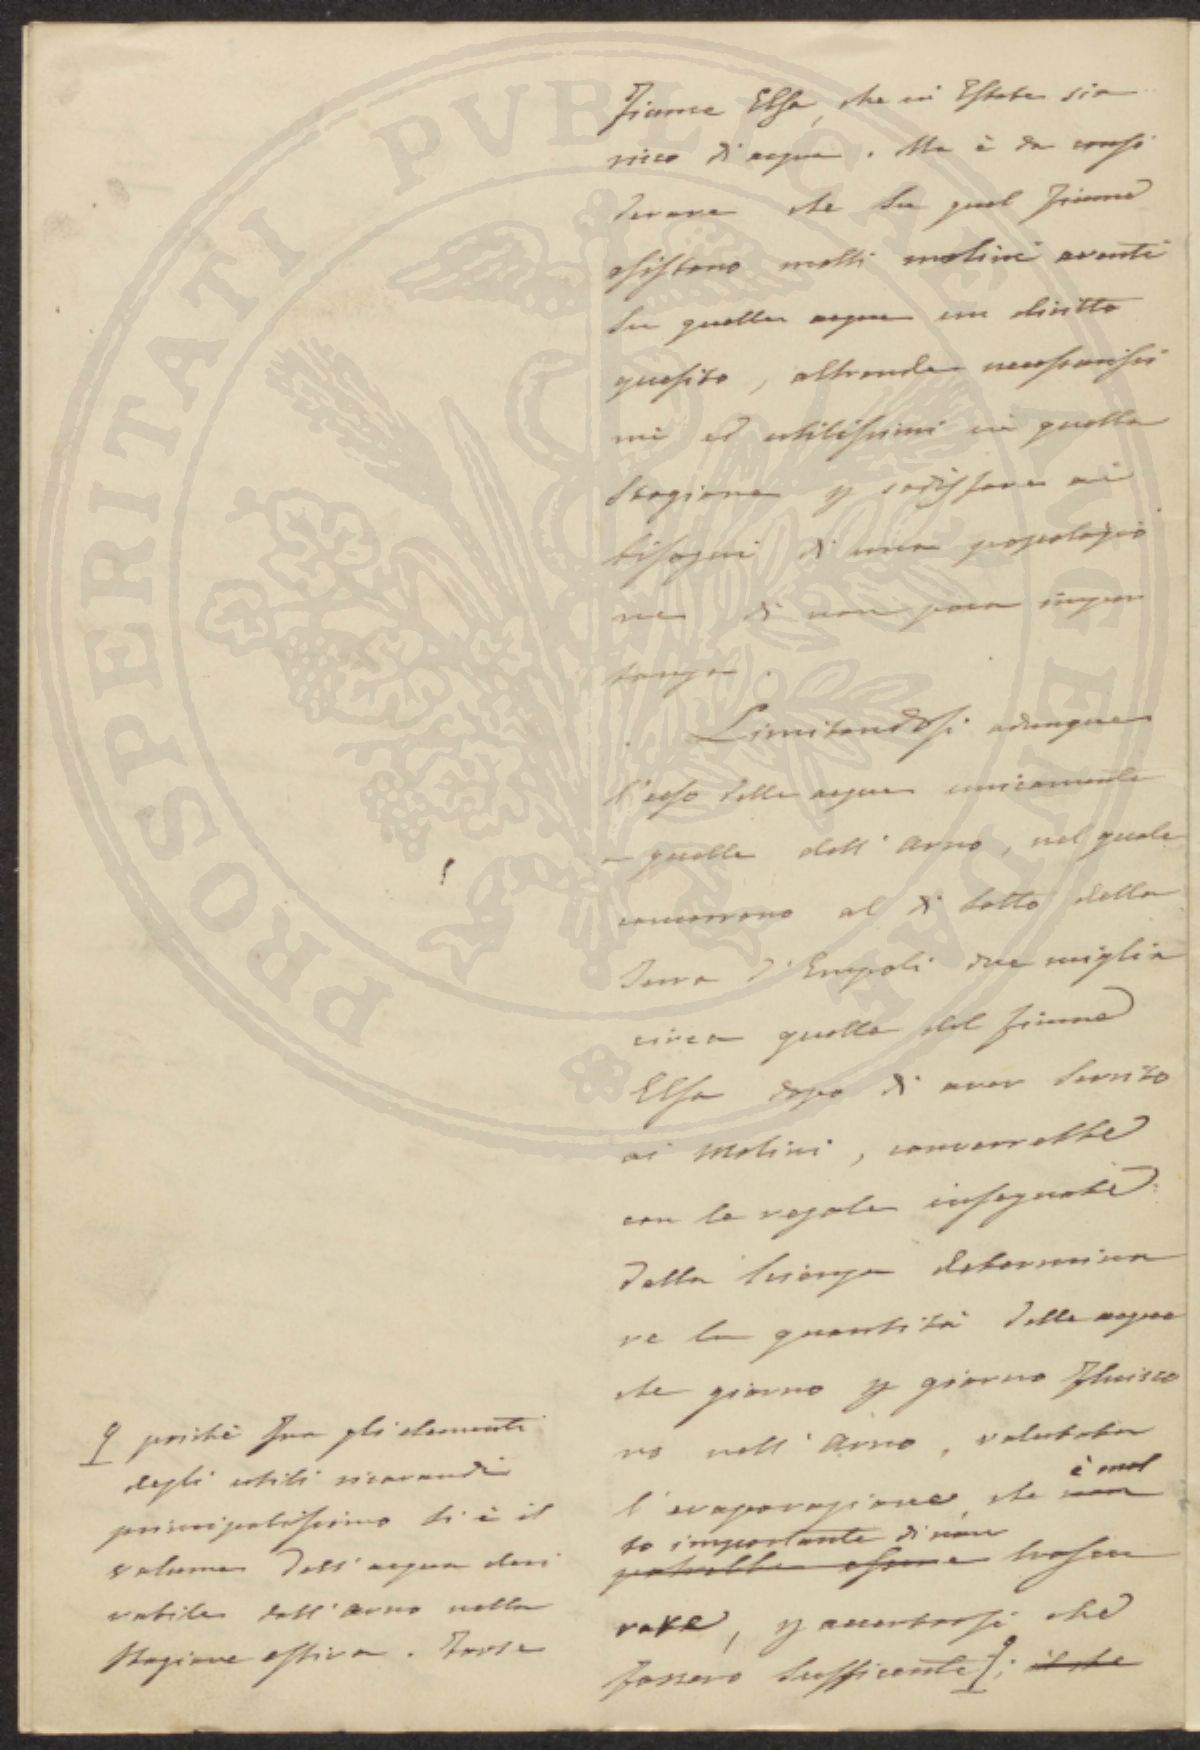 Fiume Elsa, che in Estate sia
ricco di acqua. Ma è da consi
derare che su quel fiume
esistono molti molini aventi
su quelle acque un diritto
quesito, altronde necessarissi
mi ed utilissimi in quella
stagione p sodisfare ai
bisogni di una popolazio
ne di non poca impor
tanza.
Limitandosi adunque
l'uso delle acque unicamente
a quelle dell'Arno, nel quale
concorrono al di sotto della
Terra d'Empoli due miglia
circa quelle del fiume
Elsa dopo di aver servito
ai Molini, converrebbe
con le regole insegnate
dalla Scienza determina
re la quantità delle acque
che giorno p giorno fluisco
no nell'Arno, valutata
l'evaporazione che non è mol
to importante di non
potrebbe essere trascu
rare, p accertarsi che
fossero sufficente; il che
poichè fra gli elementi
degli utili ricavandi
principalissimo si è il
volume dell'acqua deri
vabile dall'Arno nella
stagione estiva. Forse
PROSPERITATI PVBLICAE AVGENDAE